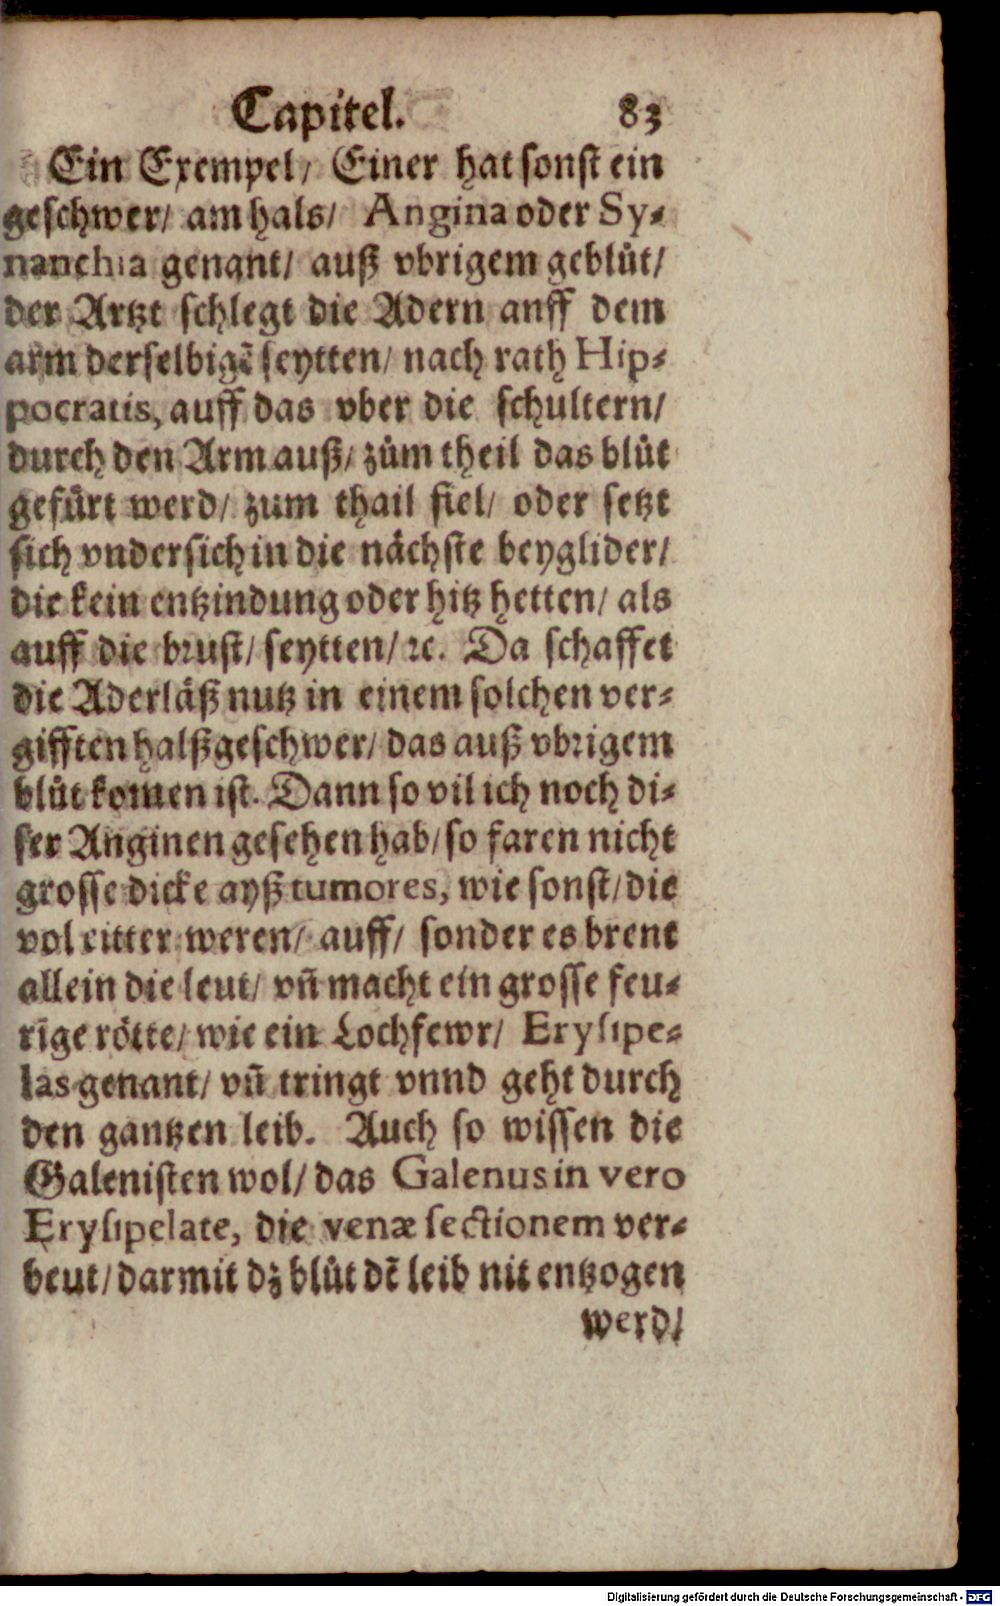 Capitel. 83
Ein Exempel/ Einer hat sonst ein
geschwer/ am hals/ Angina oder Sy-
nanchia genant/ auß vbrigem geblůt/
der Artzt schlegt die Adern anff dem
arm derselbigē seytten/ nach rath Hip-
pocratis, auff das vber die schultern/
durch den Arm auß/ zům theil das blůt
gefůrt werd/ zum thail fiel/ oder setzt
sich vndersich in die nächste beyglider/
die kein entzindung oder hitz hetten/ als
auff die brust/ seytten/ ꝛc. Da schaffet
die Aderläß nutz in einem solchen ver-
gifften halßgeschwer/ das auß vbrigem
blůt komen ist. Dann so vil ich noch di-
ser Anginen gesehen hab/ so faren nicht
grosse dicke ayß tumores, wie sonst/ die
vol eitter weren/ auff/ sonder es brent
allein die leut/ vñ macht ein grosse feu-
rige rötte/ wie ein Lochfewr/ Erysipe-
las genant/ vñ tringt vnnd geht durch
den gantzen leib. Auch so wissen die
Galenisten wol/ das Galenus in vero
Erysipelate, die venæ sectionem ver-
beut/ darmit dz blůt dē leib nit entzogen
werd/
Digitalisierung gefördert durch die Deutsche Forschungsgemeinschaft - DFG